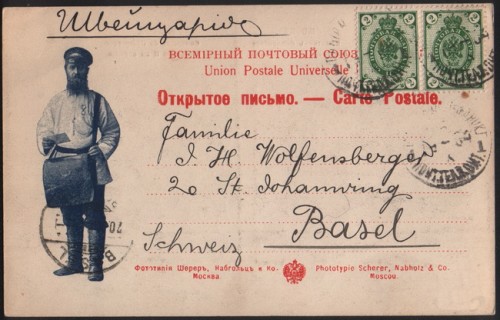 Швейцарію
ВСЕМІРНЫЙ ПОЧТОВЫЙ СОЮЗ
Union Postale Universelle
Открытое письмо. — Carte Postale.
Familie
J. H. Wolfensberger
20 St. Johannring
Basel
Schweiz
Фототипія Шереръ, Набгольцъ и Ко.
Москва.
Phototypie Scherer, Nabholz & Co.
Moscou.
2 2
2 2